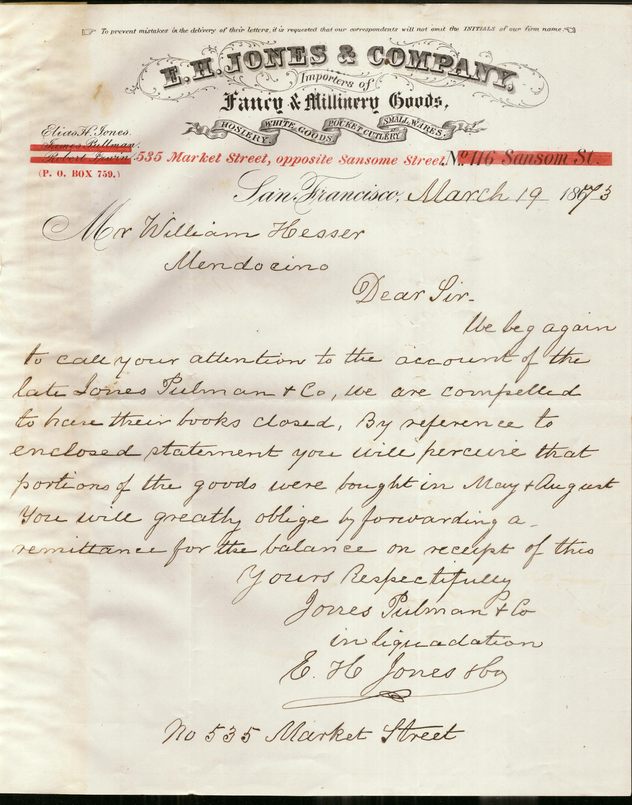 To prevent mistakes in the delivery of their letters, it is requested that our correspondents will not omit the INITIALS of our firm name.
E. H. JONES & COMPANY,
Importers of
Fancy & Millinery Goods,
HOSIERY WHITE GOODS POCKET CUTLERY SMALL WARES.
Elias H. Jones.
James Pullman.
Robert Lewin
535 Market Street, opposite Sansome Street, No. 116 Sansom St.
(P. O. BOX 759.)
San Francisco, March 19 1873
Mr William Hesser
Mendocino
Dear Sir-
We beg again
to call your attention to the account of the
late Jones Pulman & Co, we are compelled
to have their books closed, By reference to
enclosed statement you will percuive that
portions of the goods were bought in May & August
You will greatly oblige by forwarding a
remittance for the balance on receipt of this
Yours Respectifully
Jones Pulman & Co
in liquadation
E. H Jones & Co
No 535 Market Street